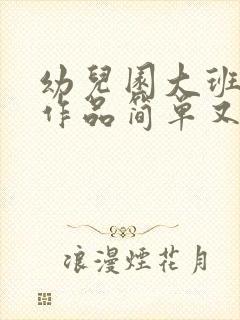 幼兒園大班
作品简单又
浪漫煙花月